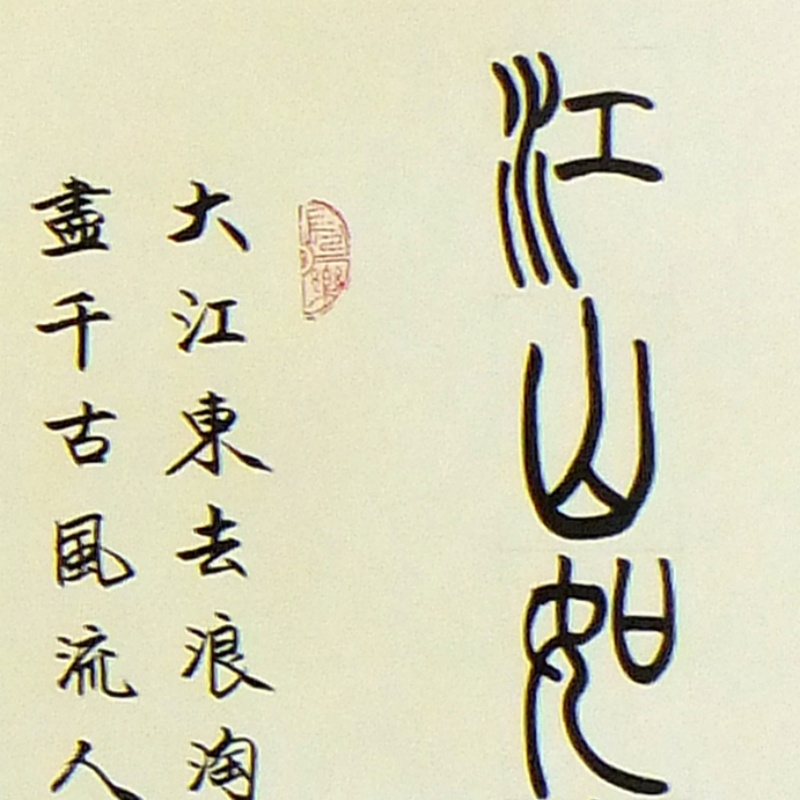 江山如
大江東去浪淘
盡千古風流人